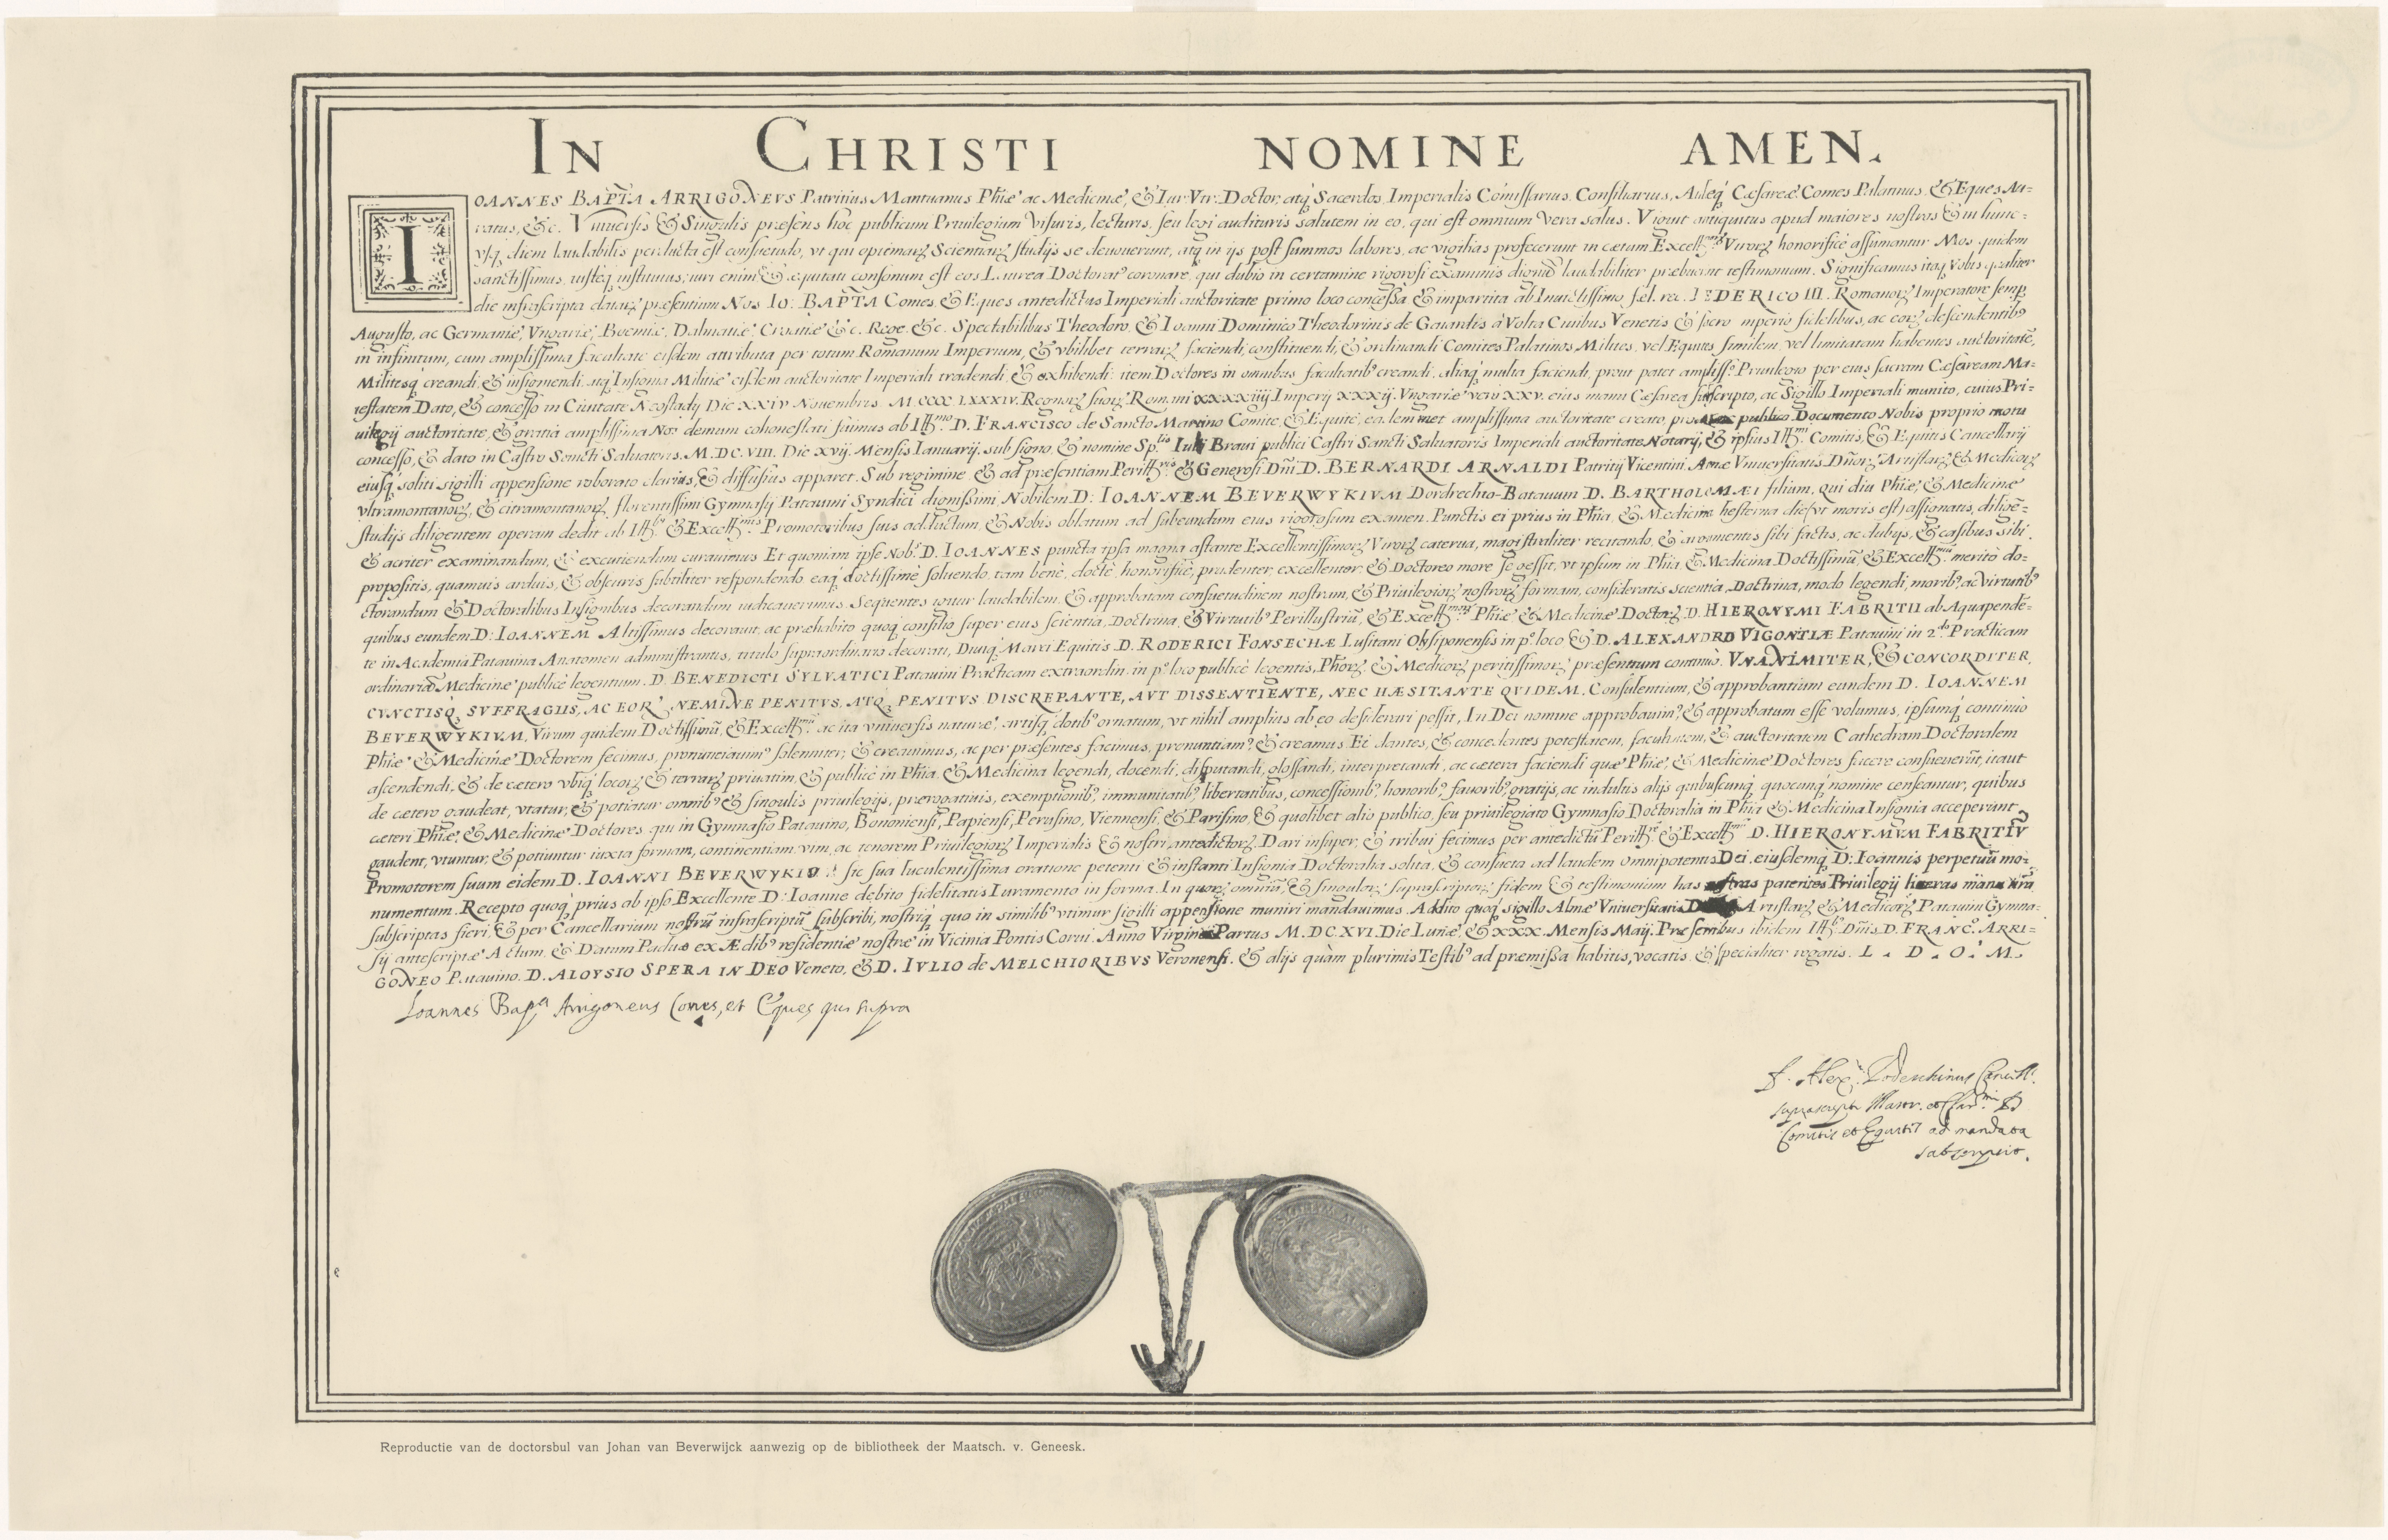 IN CHRISTI NOMINE AMEN.
IOANNES BAPTA ARRIGONEVS Patritius Mantuanus Phiæ ac Medicinæ, & Iur. Vtr. Doctor, atq Sacerdos, Imperialis Comissarius, Consiliarius, Aulæq Cæsareæ Comes Palatinus, & Eques Au=
ratus, &c. Vniuersis & Singulis præsens hoc publicum Priuilegium visuris, lecturis, seu legi audituris salutem in eo, qui est omnium vera salus. Viguit antiquitus apud maiores nostros & in hunc=
vsq diem laudabilis perducta est consuetudo, vt qui optimarz Scientiarz studijs se deuouerunt, atq in ijs post summos labores, ac vigilias profecerunt in cætum Excellmorz Virorz honorificè assumantur Mos quidem
sanctissimus, iusteq institutus; iuri enim, & æquitati consonum est eos Laurea Doctorat9 coronare, qui dubio in certamine rigorosi examinis dignū laudabiliter præbuerint testimonium. Significamus itaq Vobis qualiter
die infrascripta datarz præsentium Nos IO: BAPTA Comes, & Eques antedictus Imperiali auctoritate primo loco concessa & impartita ab Inuictissimo, fæl. rec. FEDERICO III. Romanorz Imperatore semp
Augusto, ac Germaniæ, Vngariæ, Boemiæ, Dalmatiæ, Croatiæ &c. Rege, &c. Spectabilibus Theodoro, & Ioanni Dominico Theodorinis de Gauardis à Volta Ciuibus Venetis & sacro imperio fidelibus, ac eorz descendentib9
in infinitum, cum amplissima facultate eisdem attributa per totum Romanum Imperium, & vbilibet terrarz faciendi, constituendi, & ordinandi Comites Palatinos, Milites, vel Equites similem, vel limitatam habentes auctoritatē,
Militesq creandi, & insigniendi, atq Insignia Militiæ eisdem auctoritate Imperiali tradendi, & exhibendi: item Doctores in omnibus facultatib9 creandi, aliaq multa faciendi, prout patet ampliss.o Priuilegio per eius sacram Cæsaream Ma=
iestatem Dato, & concesso in Ciuitate Neostadij Die XXIV Nouembris M CCCC LXXXIV. Regnorz suorz Romani XXXXiiij Imperij XXXij. Vngariæ verò XXV. eius manu Cæsarea subscripto, ac Sigillo Imperiali munito, cuius Pri=
uilegij auctoritate, & gratia amplissima Nos demum cohonestati fuimus ab Illmo D. FRANCISCO de Sancto Martino Comite, & Equite, ea lem met amplissima auctoritate creato, pro publico Documento Nobis proprio motu
concesso, & dato in Castro Sancti Saluatoris. M.DC.VIII. Die XVij. Mensis Ianuarij. sub signo, & nomine Sp.lis Iulij Braui publici Castri Sancti Saluatoris Imperiali auctoritate Notarij, & ipsius Illmi Comitis, & Equitis Cancellarij
eiusq soliti sigilli appensione roborato clarius, & diffusius apparet. Sub regimine & ad præsentiam Perillris & Generosi Dñi D. BERNARDI ARNALDI Patritij Vicentini Almæ Vniuersitatis Dñorz Artistarz & Medicorz
vltramontanorz, & citramontanorz florentissimi Gymnasij Patauini Syndici dignissimi Nobilem D: IOANNEM BEVERWYKIVM Dordrechto-Batauum D. BARTHOLOMÆI filium, qui diu Phiæ, & Medicinæ
studijs diligentem operam dedit ab Illbus & Excellmis Promotoribus suis adductum, & Nobis oblatum ad subeundum eius rigorosum examen. Punctis ei prius in Phia, & Medicina hesterna die, vt moris est, assignatis, diligē=
& acriter examinandum, & excutiendum curauimus Et quoniam ipse Nob.s D. IOANNES puncta ipsa magna astante Excellentissimorz Virorz caterua, magistraliter recitando, & argumentis sibi factis, ac dubijs, & casibus sibi
propositis, quamuis arduis, & obscuris subtiliter respondendo, eaq doctissimè soluendo, tam benè, doctè, honorificè, prudenter, excellenter, & Doctoreo more se gessit, vt ipsum in Phia, & Medicina Doctissimū, & Excellmū meritò do=
ctorandum & Doctoralibus Insignibus decorandum iudicauerimus. Sequentes igitur laudabilem, & approbatam consuetudinem nostram, & Priuilegiorz nostrorz formam, consideratis scientia, Doctrina, modo legendi, morib9, ac Virtutib9
quibus eundem D: IOANNEM Altissimus decorauit, ac præhabito quoq consilio super eius scientia, Doctrina, & Virtutib9 Perillustriū, & Excellmorz Phiæ & Medicinæ Doctorz D. HIERONYMI FABRITII ab Aquapende=
te in Academia Patauina Anatomen administrantis, titulo supraordinario decorati, Diuiq Marci Equitis D. RODERICI FONSECHÆ Lusitani Olysiponensis in p.o loco & D. ALEXANDRO VIGONTIÆ Patauini in 2.do Practicam
ordinariā Medicinæ publicè legentium. D. BENEDICTI SYLVATICI Patauini Practicam extraordin. in p.o loco publicè legentis, Phorz & Medicorz peritissimorz præsentium continuò. VNANIMITER, & CONCORDITER,
CVNCTISQ SVFFRAGIIS, AC EOR. NEMINE PENITVS, ATQ PENITVS DISCREPANTE, AVT DISSENTIENTE, NEC HÆSITANTE QVIDEM, Consulentium, & approbantium eundem D. IOANNEM
BEVERWYKIVM, Virum quidem Doctissimū, & Excellmū ac ita vniuersis naturæ, artisq dotib9 ornatum, vt nihil amplius ab eo desiderari possit, In Dei nomine approbauim9, & approbatum esse volumus, ipsumq continuò
Phiæ & Medicinæ Doctorem fecimus, pronunciauim9 solenniter, & creauimus, ac per præsentes facimus, pronuntiam9, & creamus Ei dantes, & concedentes potestatem, facultatem, & auctoritatem Cathedram Doctoralem
ascendendi, & de cætero vbiq locorz & terrarz priuatim, & publicè in Phia, & Medicina legendi, docendi, disputandi, glossandi, interpretandi, ac cætera faciendi quæ Phiæ, & Medicinæ Doctores facere consueuerūt, itaut
de cætero gaudeat, vtatur, & potiatur omnib9 & singulis priuilegijs, prærogatiuis, exemptionib9, immunitatib9 libertatibus, concessionib9, honorib9, fauorib9, gratijs, ac indultis alijs quibuscunq quocunq nomine censeantur, quibus
cæteri Phiæ, & Medicinæ Doctores qui in Gymnasio Patauino, Bononiensi, Papiensi, Perusino, Viennensi, & Parisino, & quolibet alio publico, seu priuilegiato Gymnasio Doctoralia in Phia & Medicina Insignia acceperunt
gaudent, vtuntur, & potiuntur iuxta formam, continentiam, vim, ac tenorem Priuilegiorz Imperialis & nostri antedictorz. Dari insuper, & tribui fecimus per antedictū Perillre & Excellmū D. HIERONYMVM FABRITIV̄
Promotorem suum eidem D. IOANNI BEVERWYKIO sic sua luculentissima oratione petenti & instanti Insignia Doctoralia solita, & consueta ad laudem omnipotentis Dei, eiusdemq D: Ioannis perpetuū mo=
numentum. Recepto quoq prius ab ipso Excellente D: Ioanne debito fidelitatis Iuramento in forma. In quorz omniū, & singulorz suprascriptorz fidem & testimonium has nostras patentes Priuilegij literas manu nrā
subscriptas fieri, & per Cancellarium nostrū infrascriptū subscribi, nostriq quo in similib9 vtimur sigilli appensione muniri mandauimus. Addito quoq sigillo Almæ Vniuersitatis D Artistarz & Medicorz Patauini Gymna=
sij antescriptæ Actum, & Datum Paduæ ex Ædib9 residentiæ nostræ in Vicinia Pontis Corui. Anno Virginei Partus M.DC.XVI. Die Lunæ, & XXX. Mensis Maij. Præsentibus ibidem Illri Dño D. FRANC.O ARRI=
GONEO Patauino. D. ALOYSIO SPERA IN DEO Veneto, & D. IVLIO de MELCHIORIBVS Veronensi, & alijs quàm plurimis Testib9 ad præmissa habitis, vocatis, & specialiter rogatis. L. D. O. M.
Ioannes Bapa Arrigoneus Comes, et Eques qui supra
Comitis et Equitis ad mandata
Reproductie van de doctorsbul van Johan van Beverwijck aanwezig op de bibliotheek der Maatsch. v. Geneesk.